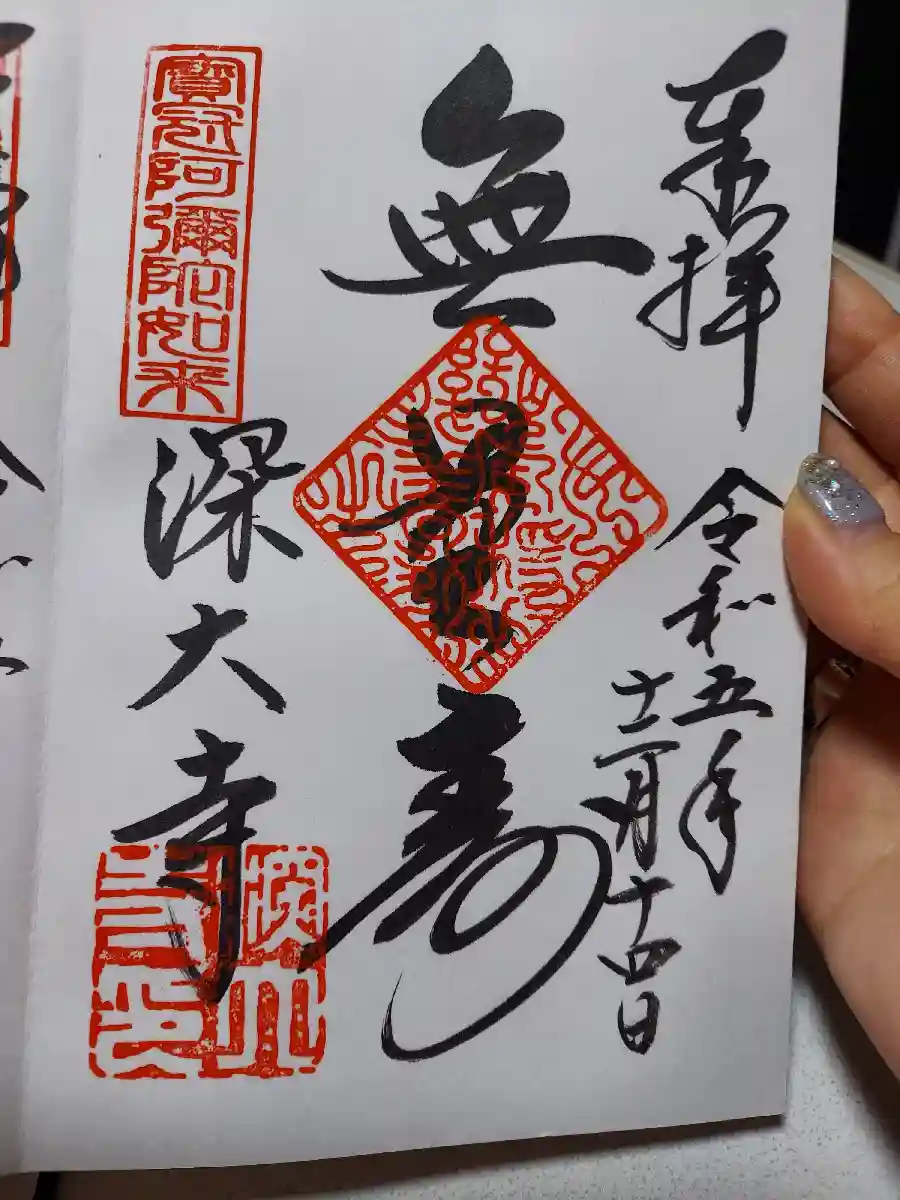 奉拝
令和五年
十二月十四日
無量寿
寶冠阿彌陀如来
深大寺